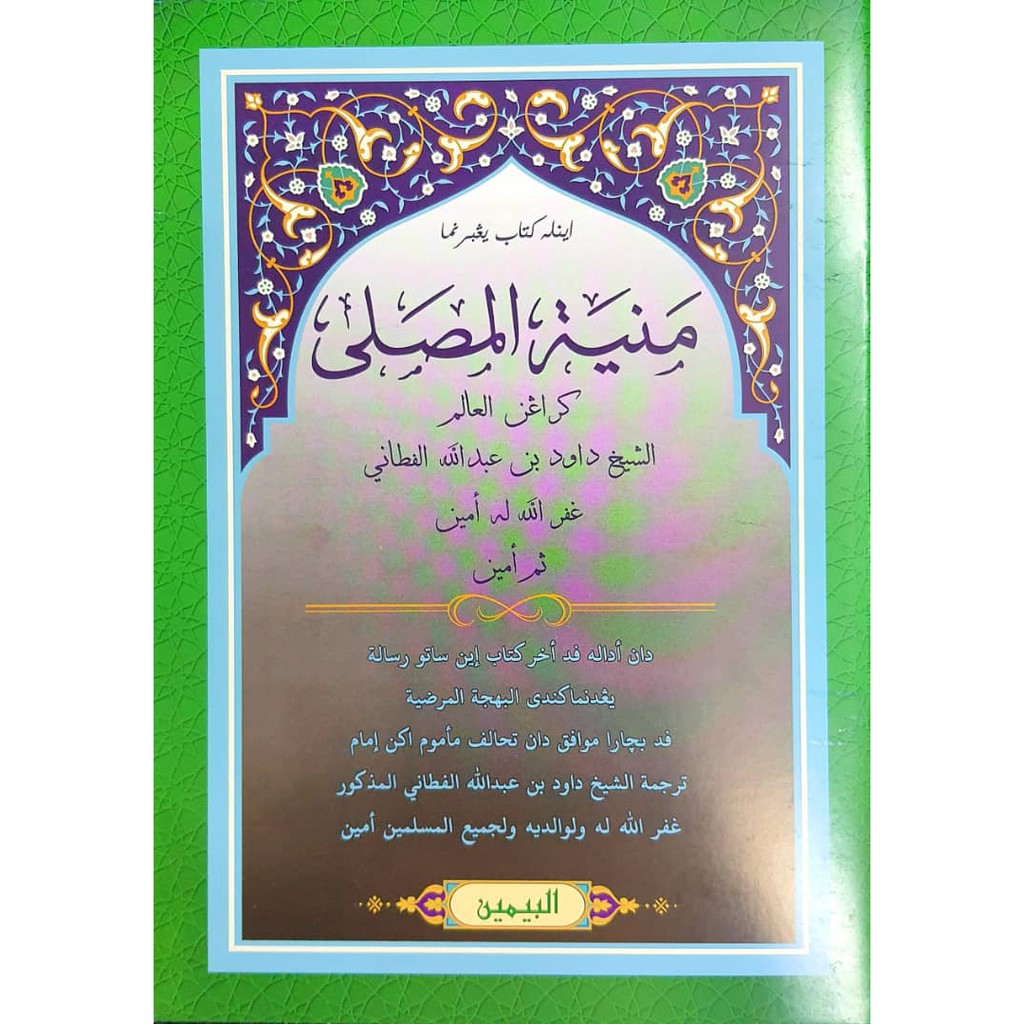 اينله كتاب يڠبرنما
منية المصلى
كراڠن العالم
الشيخ داود بن عبدالله الفطاني
غفر الله له أمين
ثم أمين
دان أداله فد أخر كتاب إين ساتو رسالة
يڠدنماكندى البهجة المرضية
فد بچارا موافق دان تحالف مأموم اكن إمام
ترجمة الشيخ داود بن عبدالله الفطاني المذكور
غفر الله له ولوالديه ولجميع المسلمين أمين
البيمين